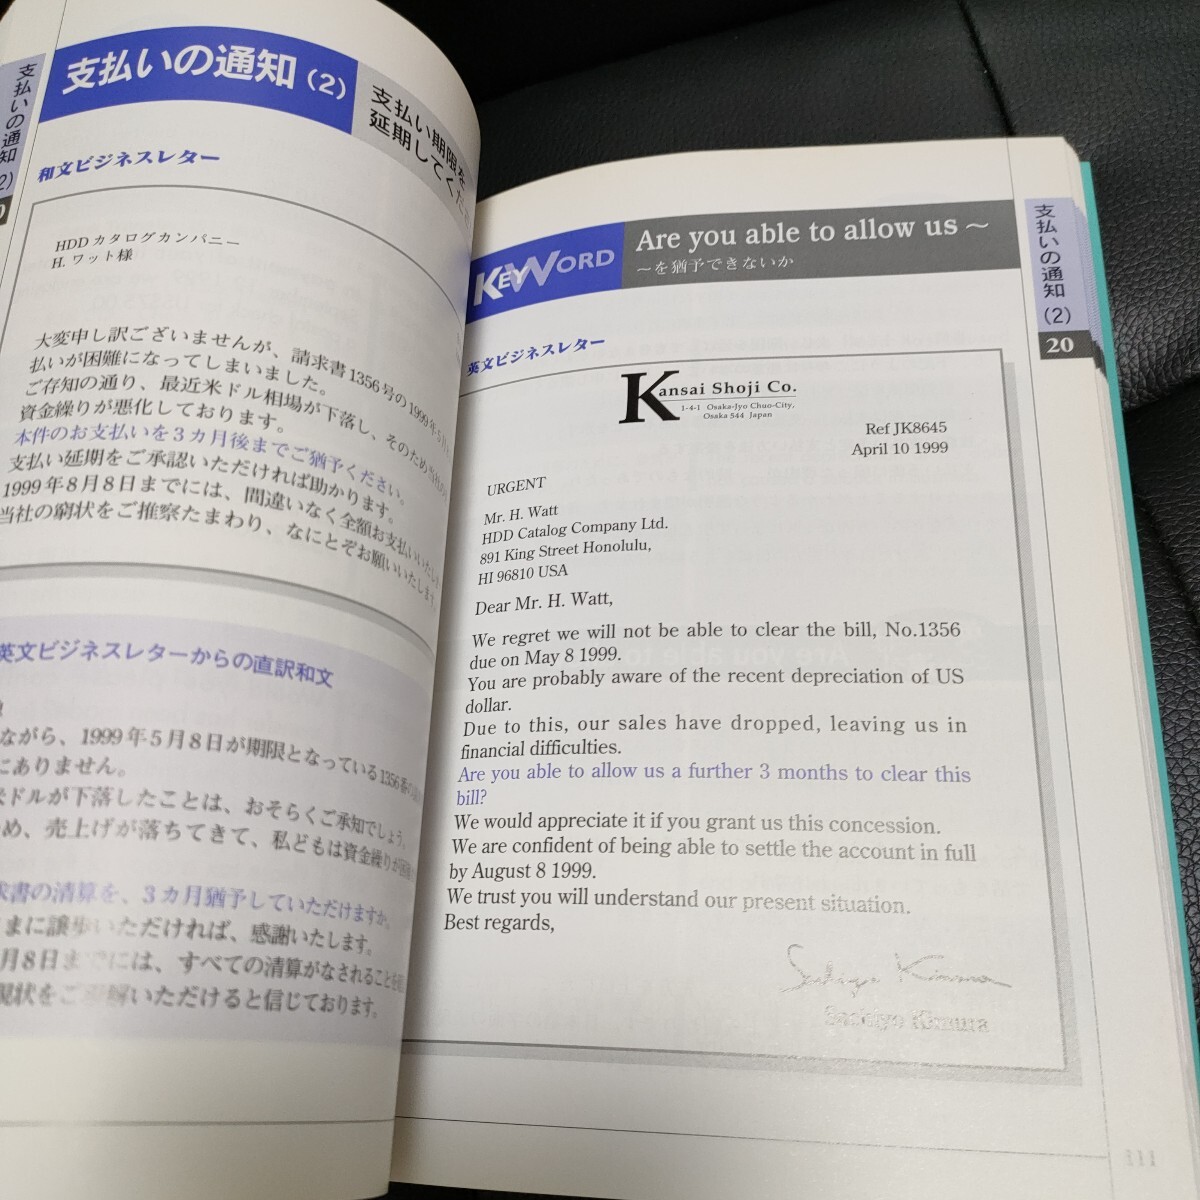 支払いの通知
支払いの通知(2)
支払い期限を
延期してくだ
和文ビジネスレター
HDDカタログカンパニー
H. ワット様
大変申し訳ございませんが、請求書1356号の1999年5月
払いが困難になってしまいました。
ご存知の通り、最近米ドル相場が下落し、そのため当社の
資金繰りが悪化しております。
本件のお支払いを3カ月後までご猶予ください。
支払い延期をご承認いただければ助かります。
1999年8月8日までには、間違いなく全額お支払いいたし
当社の窮状をご推察たまわり、なにとぞお願いいたします。
英文ビジネスレターからの直訳和文
ながら、1999年5月8日が期限となっている1356番の
にありません。
米ドルが下落したことは、おそらくご承知でしょう。
め、売上げが落ちてきて、私どもは資金繰りが
求書の清算を、3カ月猶予していただけますか。
まに譲歩いただければ、感謝いたします。
月8日までには、すべての清算がなされることを
現状をご理解いただけると信じております。
KEYWORD
Are you able to allow us ～
～を猶予できないか
英文ビジネスレター
Kansai Shoji Co.
1-4-1 Osaka-Jyo Chuo-City,
Osaka 544 Japan
Ref JK8645
April 10 1999
URGENT
Mr. H. Watt
HDD Catalog Company Ltd.
891 King Street Honolulu,
HI 96810 USA
Dear Mr. H. Watt,
We regret we will not be able to clear the bill, No.1356
due on May 8 1999.
You are probably aware of the recent depreciation of US
dollar.
Due to this, our sales have dropped, leaving us in
financial difficulties.
Are you able to allow us a further 3 months to clear this
bill?
We would appreciate it if you grant us this concession.
We are confident of being able to settle the account in full
by August 8 1999.
We trust you will understand our present situation.
Best regards,
Sachiyo Kimura
Sachiyo Kimura
支払いの通知(2)
20
111